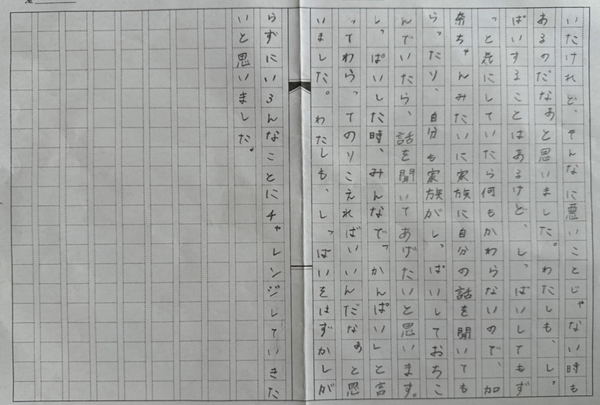 いたけれど、そんなに悪いことじゃない時も
あるのだなあと思いました。わたしも、し、
ぱいすることはあるけど、し、ぱいしてもず
っと気にしていたら何もかわらないので、加
奈ちゃんみたいに家族に自分の話を聞いても
らったり、自分も家族がし、ぱいしておちこ
んでいたら、話を聞いてあげたいと思います。
し、ぱいした時、みんなで「かんぱい」と言
ってわらってのりこえればいいんだなあと思
いました。わたしも、しっぱいをはずかしが
らずにいろんなことにチャレンジしていきた
いと思いました。